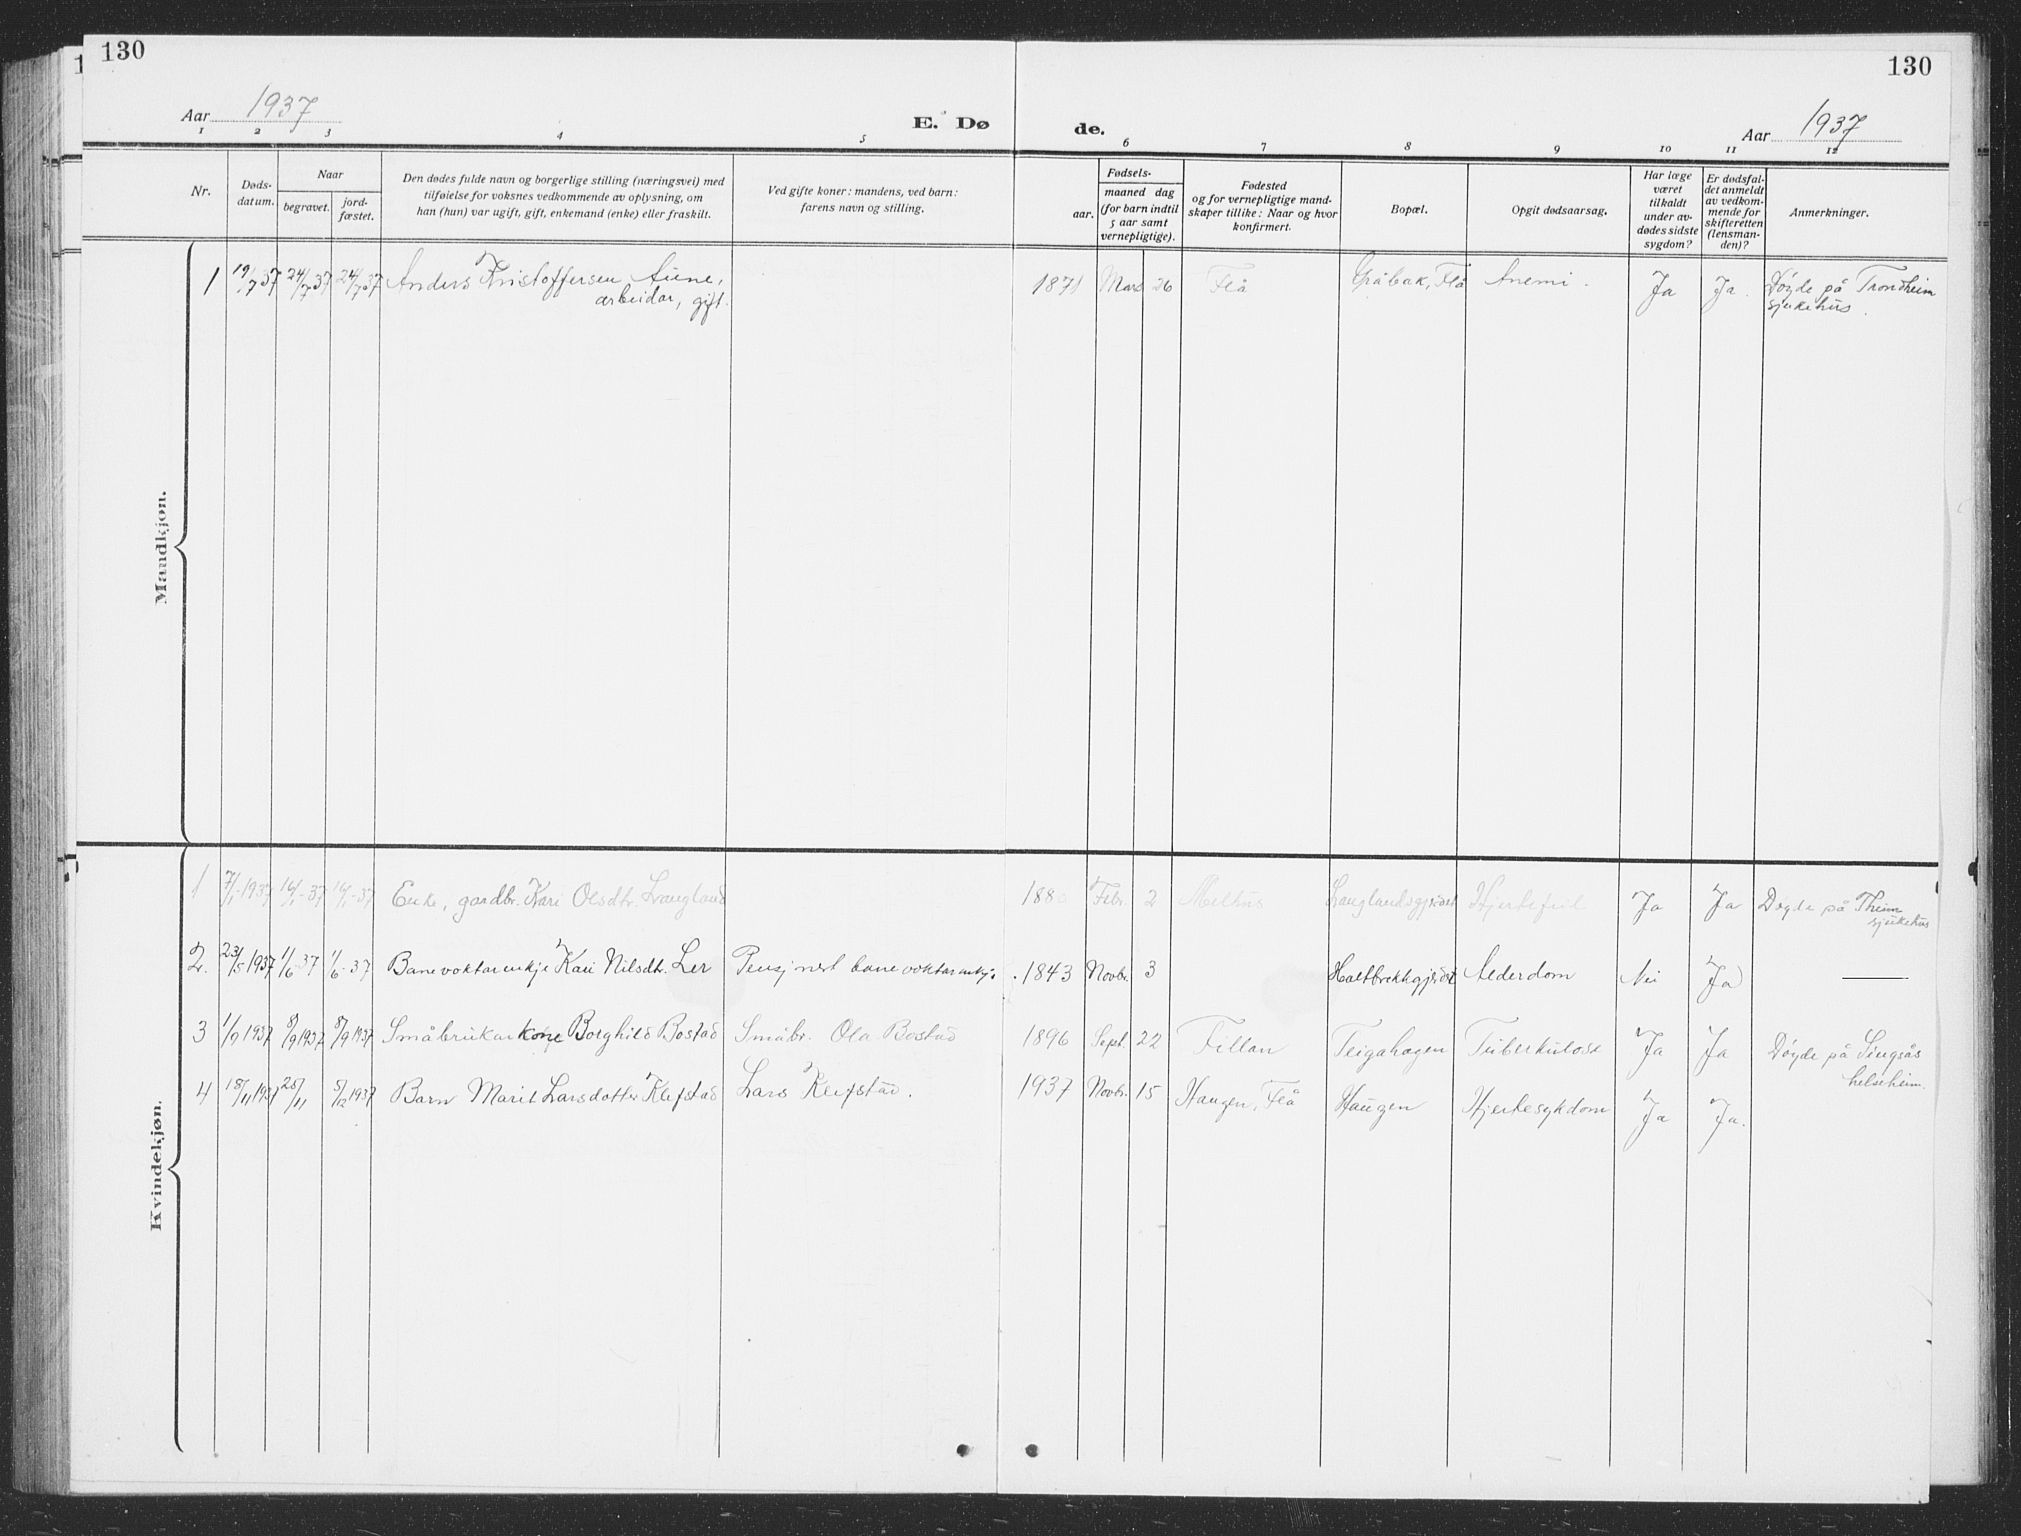 130
130
Aar 1937
E. Dø
de.
Aar 1937
1 2 3 4 5 6 7 8 9 10 11 12
Nr.
Døds-
datum.
Naar
begravet.
jord-
fæstet.
Den dødes fulde navn og borgerlige stilling (næringsvei) med
tilføielse for voksnes vedkommende av oplysning, om
han (hun) var ugift, gift, enkemand (enke) eller fraskilt.
Ved gifte koner: mandens, ved barn:
farens navn og stilling.
aar.
Fødsels-
maaned dag
(for barn indtil
5 aar samt
vernepligtige).
Fødested
og for vernepligtige mand-
skaper tillike: Naar og hvor
konfirmert.
Bopæl.
Opgit dødsaarsag.
Har læge
været
tilkaldt
under av-
dødes sidste
sygdom?
Er dødsfal-
det anmeldt
av vedkom-
mende for
skifteretten
(lensman-
den)?
Anmerkninger.
Mandkjøn.
1 19/7 37 24/7 37 24/7 37 Anders Kristoffersen Aune, 1871 Mars 26 Flå Gråbak, Flå Anemi. Ja Ja. Døyde på Trondheim
arbeidar, gift. sjukehus.
Kvindekjøn.
1 7/1-1937 16/1-37 16/1-37 Enke, gardbr. Kari Olsdtr. Langland 1880 Febr. 2 Melhus Langlandsgjerdet Hjertefeil Ja Ja Døyde på Theim
sjukehus
2. 23/5 1937 1/6-37 1/6-37 Banevoktarenkje Kari Nilsdtr. Ler Pensjonert banevoktarenkje. 1843 Novbr. 3 Alderdom Nei Ja —
3 1/9 1937 8/9 1937 8/9 1937 Småbrukarkone Borghild Bostad Småbr. Ola Bostad 1896 Sept. 22 Fillan Teigahagen Tuberkulose Ja Ja Døyde på Singsås
helseheim.
4 18/11 1937 25/11 5/12 1937 Barn Marit Larsdotter Klefstad Lars Klefstad. 1937 Novbr. 15 Haugen, Flå Haugen Hjertesykdom Ja Ja.